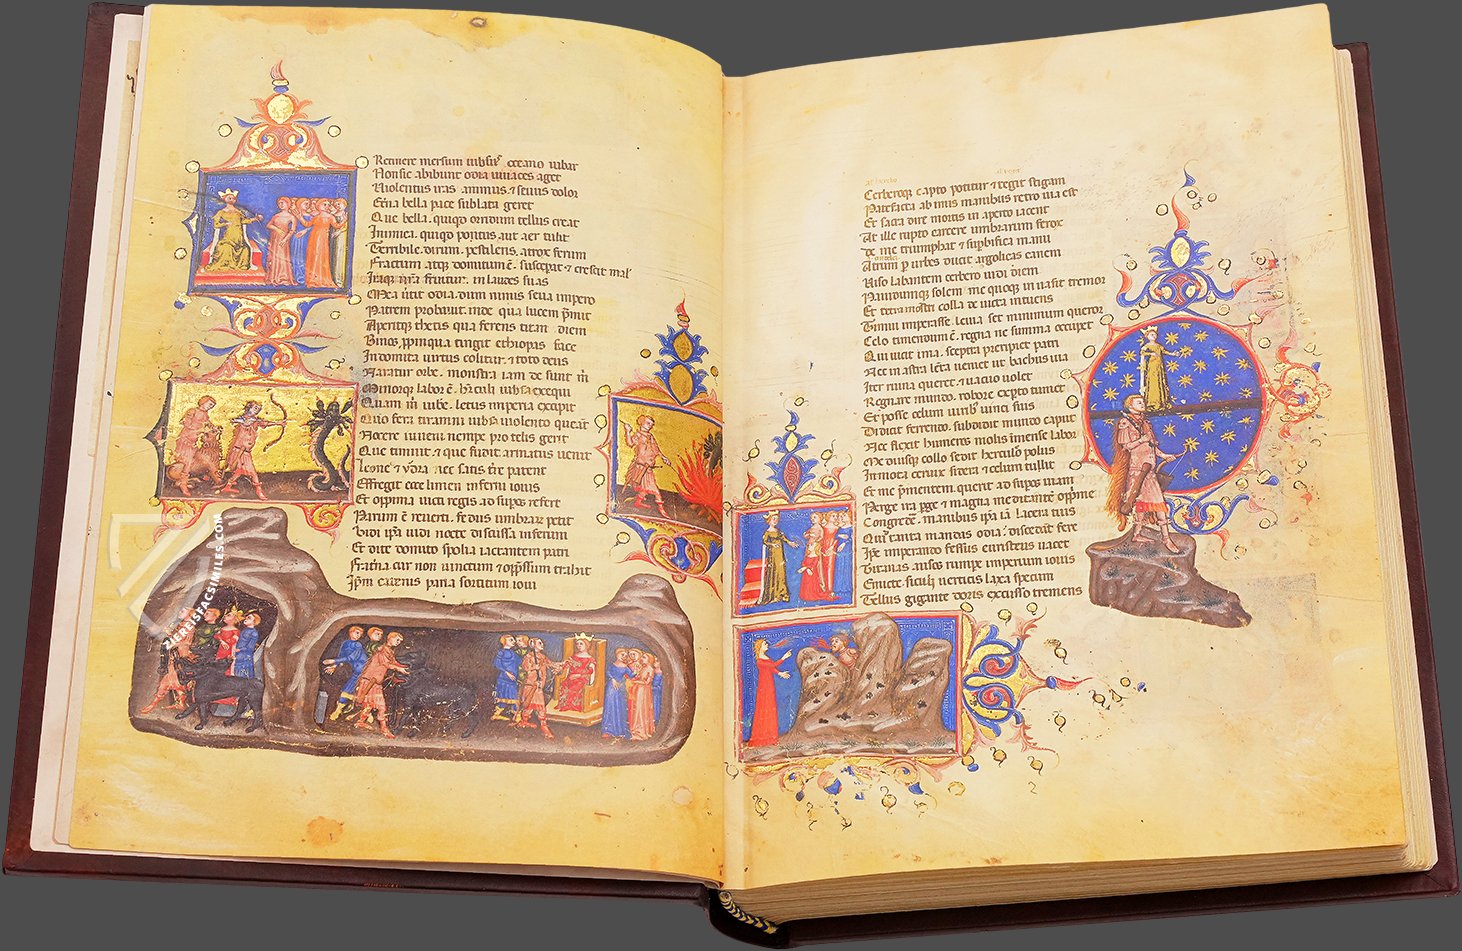 Renuere mersum iubsus oceano iubar
Non sic abibunt odia uiuaces aget
Violentus iras animus ⁊ seuus dolor
Et̄na bella pace sublata geret
Que bella. quiqd orridum tellus creat
Inimica. quiqd pontus aut aer tulit
Terribile. dirum. pestilens. atrox ferum
Fractum atqꝫ domitum ē. supat ⁊ crescit mal
Iraqꝫ nr̄a fruitur. in laudes suas
Mea ūtit odia. dum nimis seua impero
Patrem probauit. inde qua lucem p̄mit
Aperitqꝫ thetis qua ferens titan diem
Binos ppinqua tingit ethiopas face
Indomita uirtus colitur. ⁊ toto deus
Naratur orbe. monstra iam desunt m
Minorqꝫ labor ē. hercli iussa exequi
Quam m iube. letus imperia excipit
Quo fera tiranni iussa uiolento queant
Nocere iuueni nempe pro telis gerit
Que timuit ⁊ que fudit armatus uenit
Leone ⁊ ydra. nec satis tr̄e patent
Effregit ecce limen inferni iouis
Et opima uicti regis ad supos refert
Parum ē reuerti. fedus umbrar petit
Vidi ip̄a uidi nocte discussa inferum
Et dite domito spolia iactantem patri
Fratria cur non uinctum ⁊ opp̄ssum trahit
Ip̄m catenis paria sortitum ioui
Cerberoqꝫ capto potitur ⁊ regit stigam
Patefacta ab imis manibus retro uia est
Et sacra dire mortis in aperto iacent
At ille rupto carcere umbrarum ferox
de me triumphat ⁊ supbifica manu
Atrum p urbes ducit argolicas canem
Viso labantem cerbero uidi diem
Pauidumqꝫ solem. me quoqꝫ inuasit tremor
Et terna mostri colla deuicta intuens
Timui imperasse. leuia set minimum queror
Celo timendum ē. regna ne summa occupet
Qui uicit ima. sceptra preripiet patri
Nec in astra lēta ueniet ut bachus uia
Iter ruina queret. ⁊ uacuo uolet
Regnare mundo. robore exp̄to tumet
Et posse celum uirib uinci suis
Didicit ferendo. subdidit mundo caput
Nec flexit humeros molis īmense labor
Mediusqꝫ collo sedit herculeo polus
Inmota ceruix sidera ⁊ celum tullit
Et me p̄mentem. querit ad supos uiam
Perge ira pge ⁊ magna meditantē opp̄me
Congredē. manibus ip̄a iā lacera tuis
Quid tanta mandas odia. discedāt fere
Ip̄e imperando fessus euristeus uacet
Titanas ausos rumpe imperium iouis
Emicte siculi uerticis laxa specum
Tellus gigante doris excusso tremens
2
ZIEREISFACSIMILES.COM